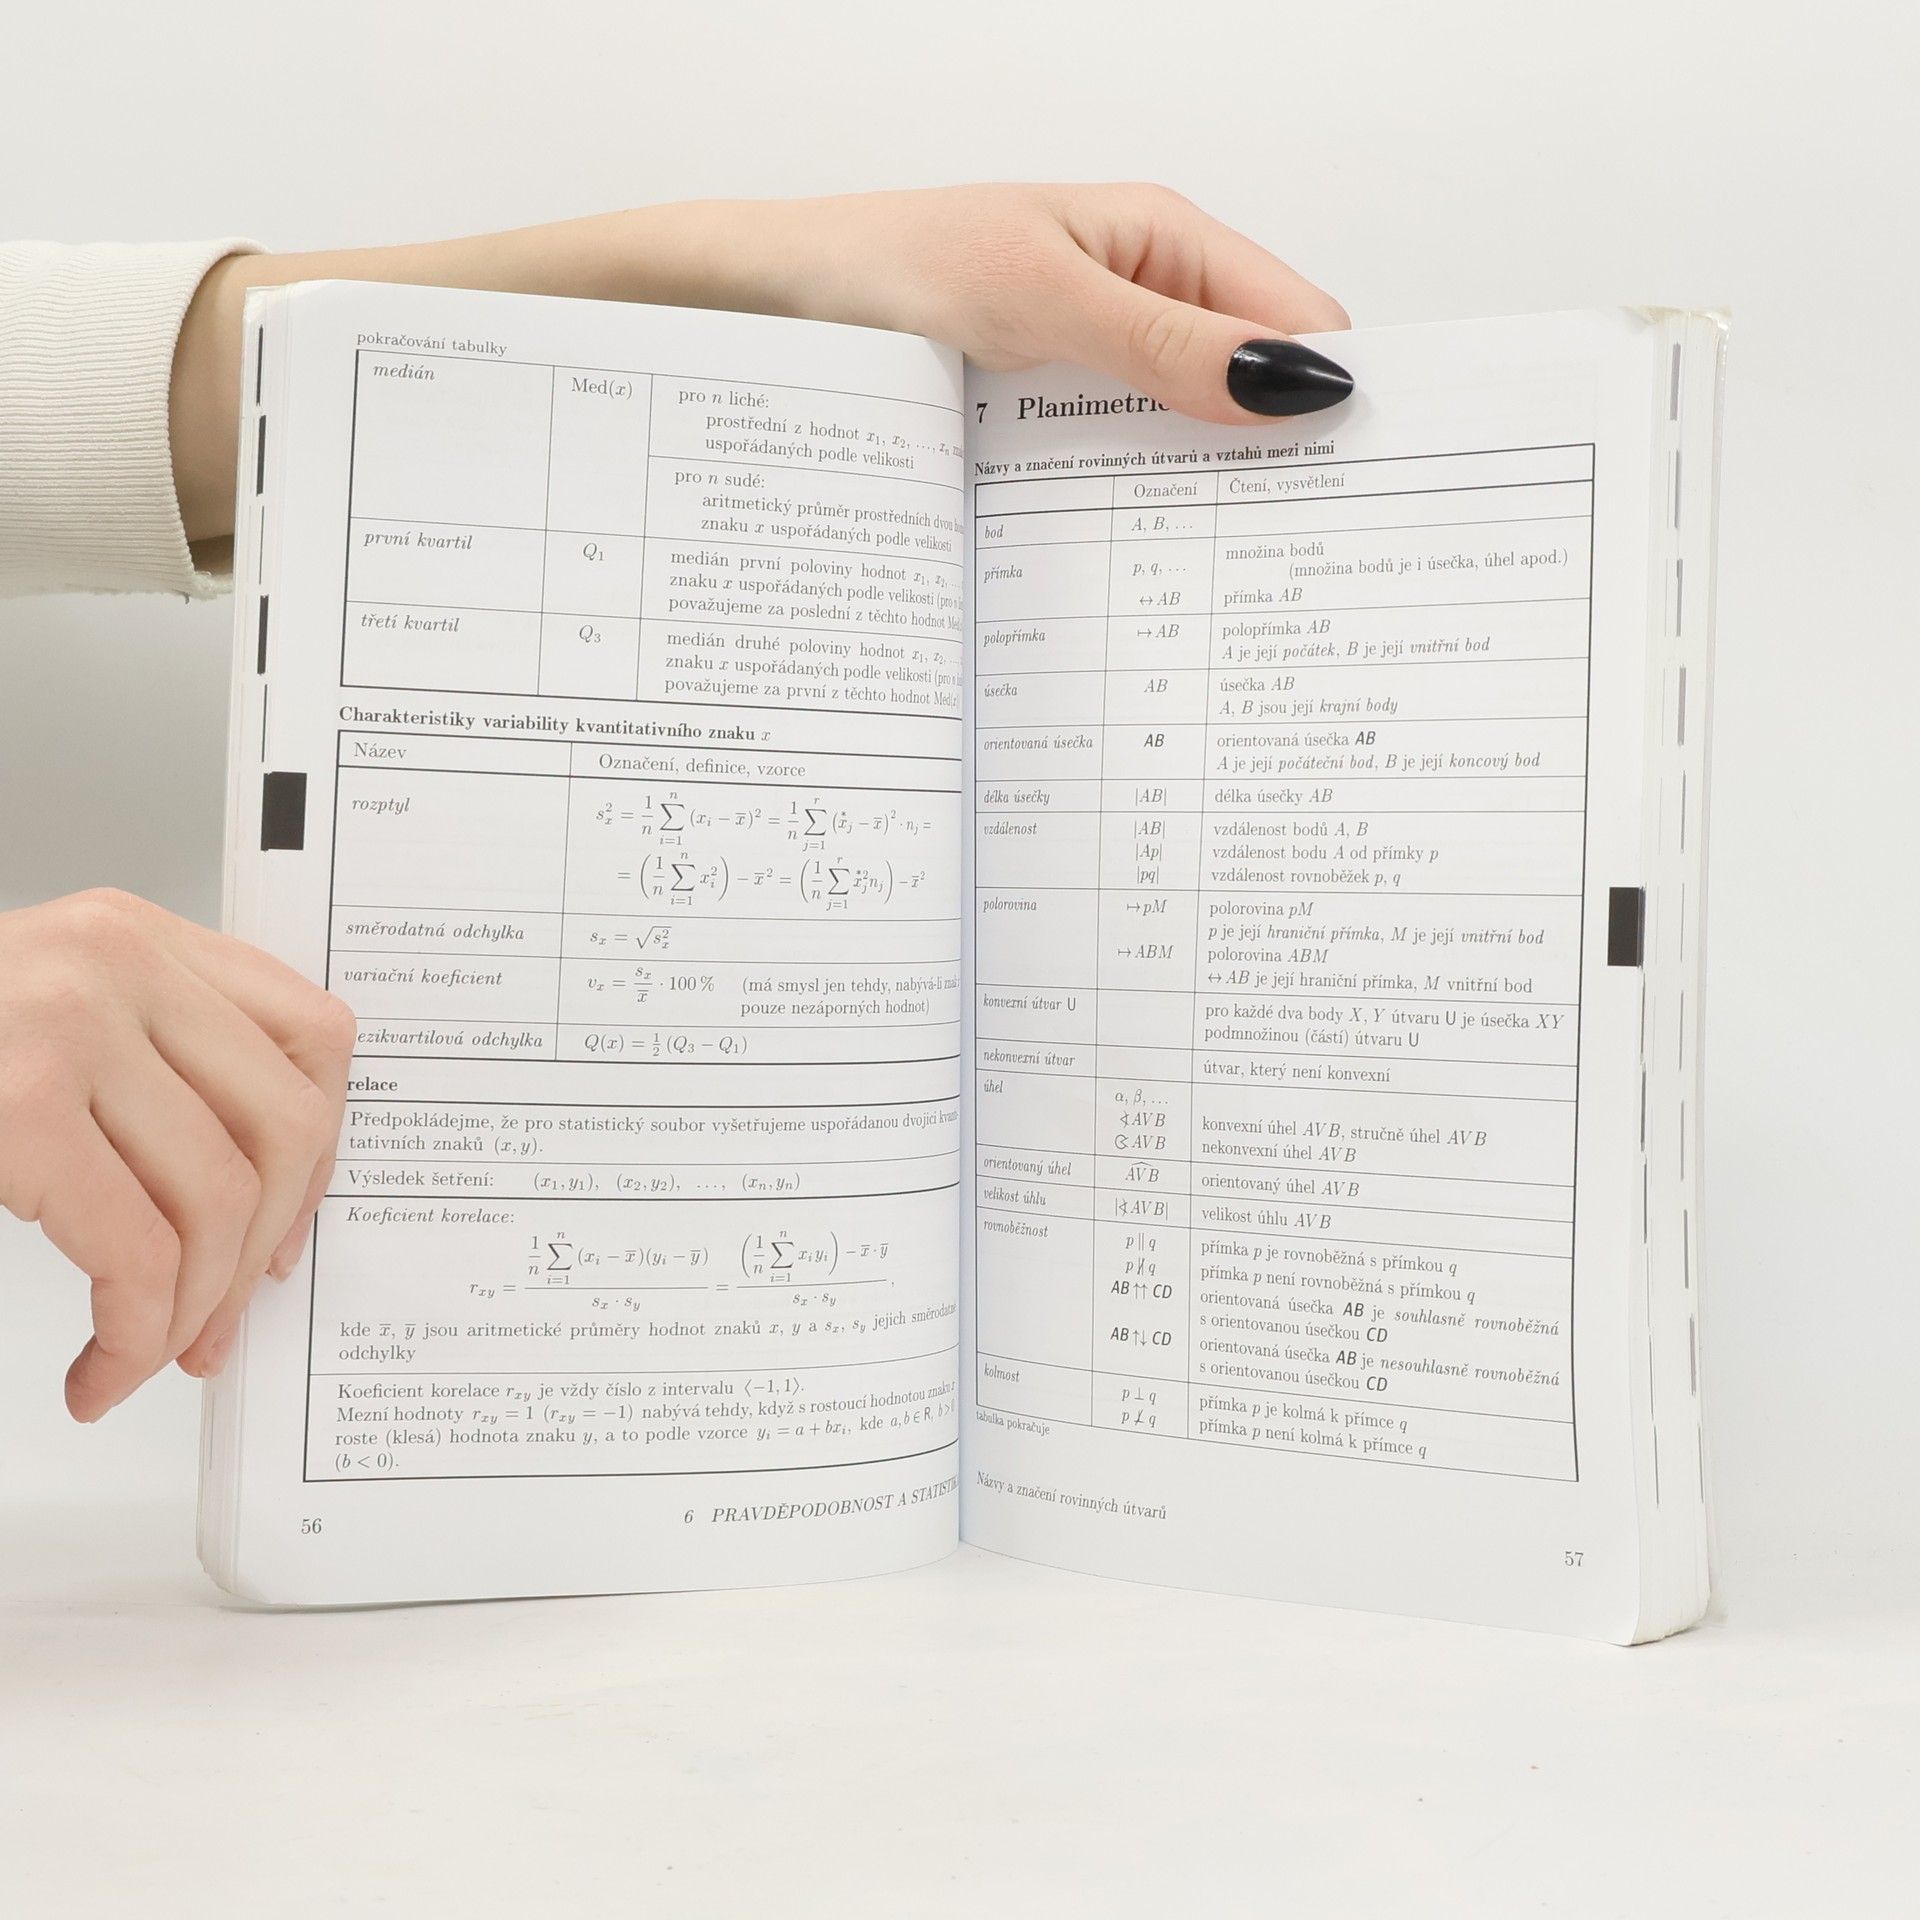 pokračování tabulky
medián Med(x) pro n liché:
prostřední z hodnot x₁, x₂, …, xₙ
uspořádaných podle velikosti
pro n sudé:
aritmetický průměr prostředních dvou
znaku x uspořádaných podle velikosti
první kvartil Q₁ medián první poloviny hodnot x₁, x₂, …
znaku x uspořádaných podle velikosti (pro n
považujeme za poslední z těchto hodnot Med
třetí kvartil Q₃ medián druhé poloviny hodnot x₁, x₂, …
znaku x uspořádaných podle velikosti (pro n
považujeme za první z těchto hodnot Med(x)
Charakteristiky variability kvantitativního znaku x
Název Označení, definice, vzorce
rozptyl s²ₓ = 1/n ∑ᵢ₌₁ⁿ (xᵢ − x̄)² = 1/n ∑ⱼ₌₁ʳ (x*ⱼ − x̄)² · nⱼ =
= (1/n ∑ᵢ₌₁ⁿ xᵢ²) − x̄² = (1/n ∑ⱼ₌₁ʳ x*ⱼ² nⱼ) − x̄²
směrodatná odchylka sₓ = √s²ₓ
variační koeficient vₓ = sₓ/x̄ · 100 % (má smysl jen tehdy, nabývá-li
pouze nezáporných hodnot)
ezikvartilová odchylka Q(x) = ½ (Q₃ − Q₁)
relace
Předpokládejme, že pro statistický soubor vyšetřujeme uspořádanou dvojici kvanti-
tativních znaků (x, y).
Výsledek šetření: (x₁, y₁), (x₂, y₂), …, (xₙ, yₙ)
Koeficient korelace:
r_xy = (1/n ∑ᵢ₌₁ⁿ (xᵢ − x̄)(yᵢ − ȳ)) / (sₓ · s_y) = ((1/n ∑ᵢ₌₁ⁿ xᵢyᵢ) − x̄ · ȳ) / (sₓ · s_y),
kde x̄, ȳ jsou aritmetické průměry hodnot znaků x, y a sₓ, s_y jejich směrodatné
odchylky
Koeficient korelace r_xy je vždy číslo z intervalu ⟨−1, 1⟩.
Mezní hodnoty r_xy = 1 (r_xy = −1) nabývá tehdy, když s rostoucí hodnotou znaku x
roste (klesá) hodnota znaku y, a to podle vzorce yᵢ = a + bxᵢ, kde a, b ∈ R, b > 0
(b < 0).
6 PRAVDĚPODOBNOST A STATISTIK
56
7 Planimetri
Názvy a značení rovinných útvarů a vztahů mezi nimi
Označení Čtení, vysvětlení
bod A, B, …
přímka p, q, … množina bodů
(množina bodů je i úsečka, úhel apod.)
↔ AB přímka AB
polopřímka ↦ AB polopřímka AB
A je její počátek, B je její vnitřní bod
úsečka AB úsečka AB
A, B jsou její krajní body
orientovaná úsečka AB orientovaná úsečka AB
A je její počáteční bod, B je její koncový bod
délka úsečky |AB| délka úsečky AB
vzdálenost |AB| vzdálenost bodů A, B
|Ap| vzdálenost bodu A od přímky p
|pq| vzdálenost rovnoběžek p, q
polorovina ↦ pM polorovina pM
p je její hraniční přímka, M je její vnitřní bod
↦ ABM polorovina ABM
↔ AB je její hraniční přímka, M vnitřní bod
konvexní útvar U pro každé dva body X, Y útvaru U je úsečka XY
podmnožinou (částí) útvaru U
nekonvexní útvar útvar, který není konvexní
úhel α, β, …
∢AVB konvexní úhel AVB, stručně úhel AVB
AVB nekonvexní úhel AVB
orientovaný úhel AVB orientovaný úhel AVB
velikost úhlu |∢AVB| velikost úhlu AVB
rovnoběžnost p ∥ q přímka p je rovnoběžná s přímkou q
p ∦ q přímka p není rovnoběžná s přímkou q
AB ↑↑ CD orientovaná úsečka AB je souhlasně rovnoběžná
s orientovanou úsečkou CD
AB ↑↓ CD orientovaná úsečka AB je nesouhlasně rovnoběžná
s orientovanou úsečkou CD
kolmost p ⊥ q přímka p je kolmá k přímce q
p ⊥̸ q přímka p není kolmá k přímce q
tabulka pokračuje
Názvy a značení rovinných útvarů
57